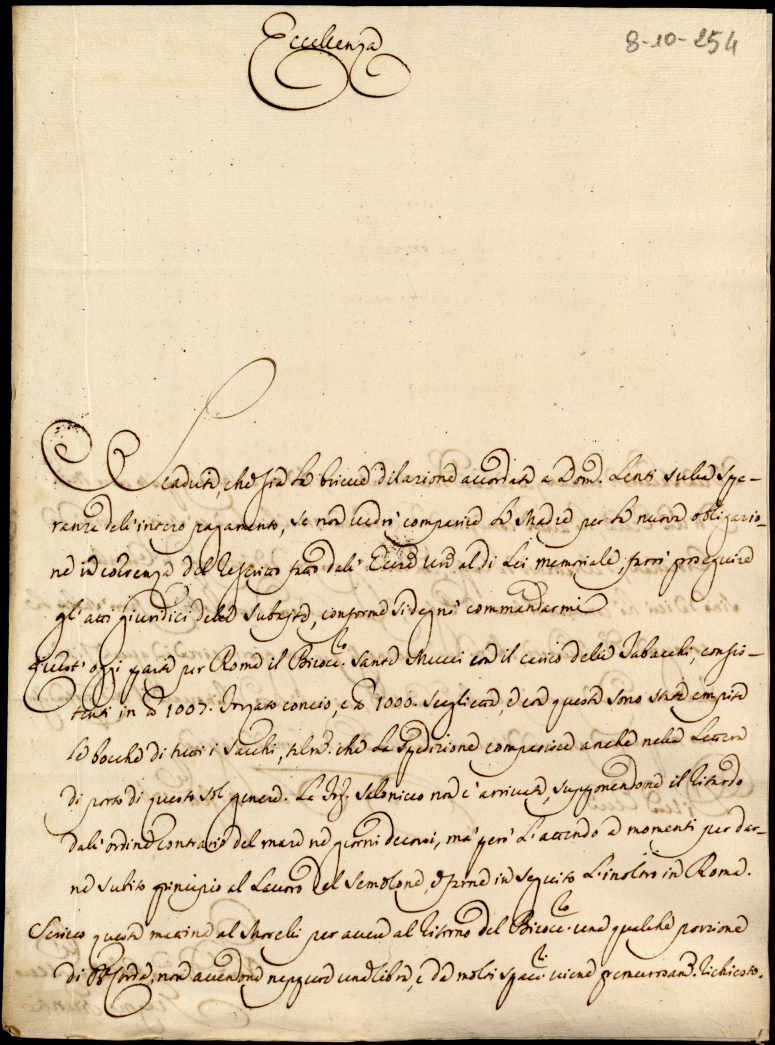 8-10-254
Eccellenza
Scaduta, che sia la breve dilazione accordata a Dom. Lenti sulla spe-
ranza dell'intero pagamento, se non vedrò comparire la Madre per la nuova obligazio-
ne in coerenza del rescritto fatto dall' Eccza Vra al di Lei memoriale, farrò proseguire
gl'atti giuridici della Subasta, conforme si degnò commandarmi
Quest' oggi parte per Roma il Bicocc.lo Sante Mucci con il carico delli Tabacchi, consis-
tenti in 1007. concio, e 1000. Scaglietta, e con questa sono state empite
le bocche di tutti i Sacchi, che la spedizione comparisce anche nella Lettera
di porto di questo sol genere. La Salonicco non è arrivata, supponendone il ritardo
dall'ordine contrario del mare ne giorni decorsi, ma però l'attendo a momenti per dar-
ne subito principio al Lavoro del Semolone, e farne in seguito l'inoltro in Roma.
Scrivo questa mattina al Morelli per avere al ritorno del Bicocc.lo una qualche porzione
di Corda, non avendone neppure una libra, e da molti spacc.li viene richiesto.